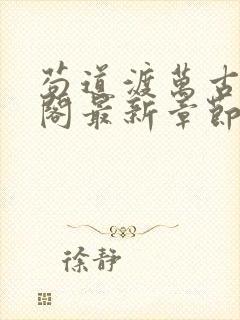 苟道渡萬古
閣最新章節
徐静